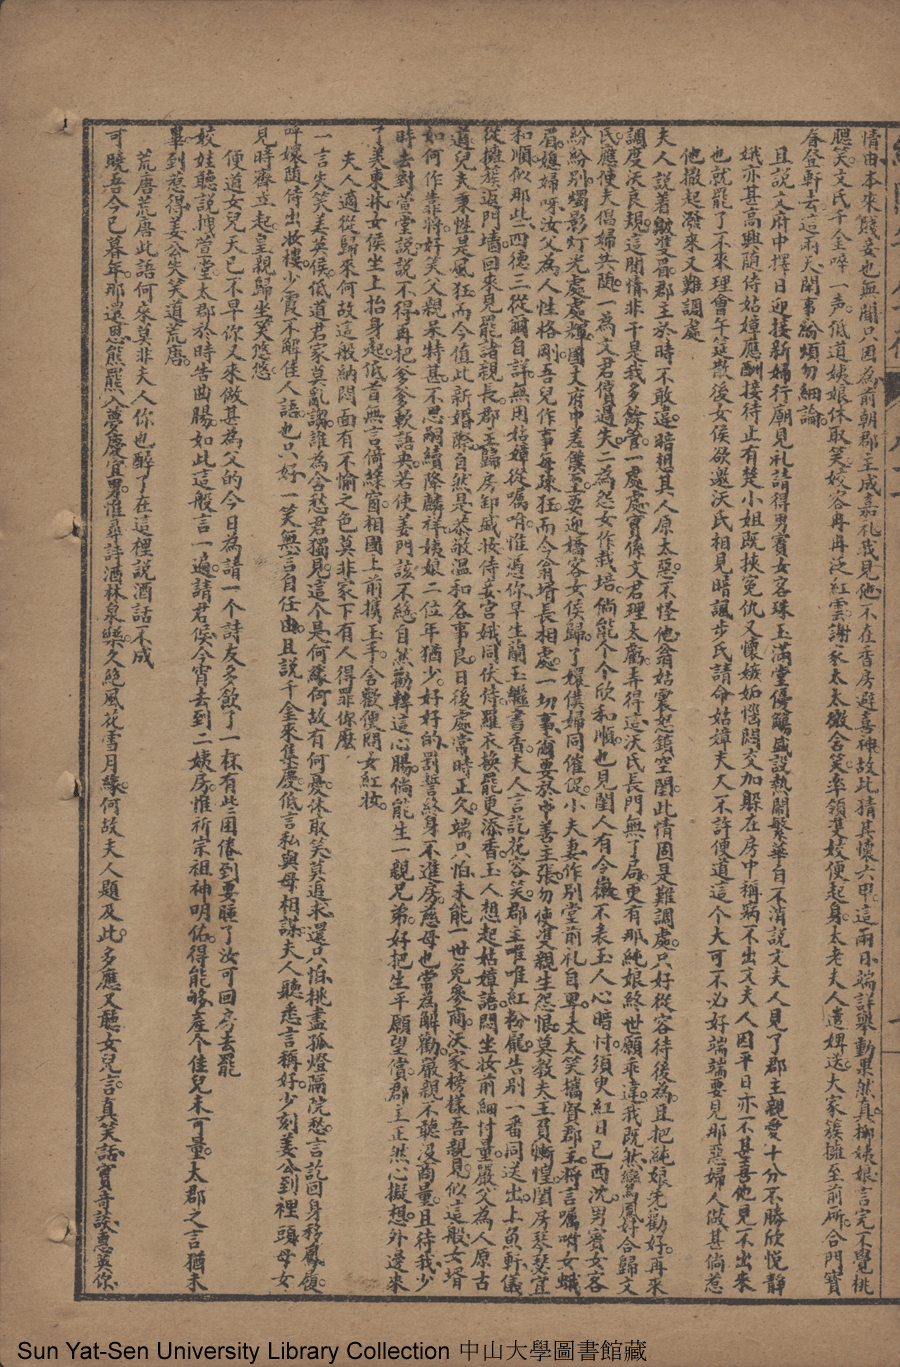 情由本來賤妾也無聞只因為前朝郡主成嘉礼我見他不在香房避喜神故此猜其懷六甲這兩日端詳舉動果然真柳姨娘言完不覺桃
腮笑文氏千金啐一声低道姨娘休取笑姣容冉冉泛紅雲謝家太太微含笑率領雙姣便起身太老夫人遣婢送大家簇擁至前所合門寳
眷登軒去這兩天閒事紛煩勿細論
且説文府中擇日迎接新婦行廟見礼請得男賓女客珠玉滿堂優觴盛設熱鬧繁華自不消說文夫人見了郡主親愛十分不勝欣悅静
娥亦甚高興随侍姑嫜應酬接待止有楚小姐既挾冤仇又懷嫉妬惱悶交加躲在房中稱病不出文夫人因平日亦不甚喜他見不出來
也就罷了不來理會午筵散後女侯欲邀沃氏相見暗諷步氏請命姑嫜夫人不許便道這个大可不必好端端要見那惡婦人做甚倘惹
他撒起潑來又難調處
夫人說著皺雙眉郡主於時不敢違暗想其人原太惡不怪他翁姑震怒錮空閨此情固是難調處只好從容待後為且把純娘先勸好再來
調度沃良規這閒情非干是我多餘管一處處寔係文君理太虧弄得這沃氏長門無了局更有那純娘終世願乖違我既然鸞鳳好合歸文
氏應使夫倡婦共随一為文君償過失二為怨女作栽培倘能个个欣和順也見閨人有令徽不表玉人心暗忖須臾紅日已西沈男賓女客
紛紛別燭影灯光處處輝國丈府中差僕至要迎嬌客女侯歸了嬛僕婦同催促小夫妻作別堂前礼自畢太太笑攜賢郡主將言嘱咐女蛾
眉媳婦呀汝父為人性格剛吾兒作事每殊狂而今翁壻長相處一切事爾要於中善主張勿使双親生怨恨莫教夫主負慚惶閨房琴瑟宜
和順似那些四德三從爾自詳無因姑嫜從嘱咐惟憑你早生蘭玉繼書香夫人言訖花容笑郡主唯唯紅粉龐告别一番同送出上魚軒儀
從擁簇返門墻回來見罷諸親長郡主歸房卸盛妝侍妾宫娥同伏侍羅衣換罷更添香玉人想起姑嫜語悶坐妝前細忖量嚴父為人原古
道兒夫秉性是風狂而今值此新婚際自然是恭敬温和各事良日後處當時正久端只怕未能一世免參商沃家榜樣吾親見似這般女壻
如何作靠將好笑父親呆特甚不思嗣續降麟祥姨娘二位年猶少好好的罰誓終身不進房慈母也嘗為解勸嚴親不聽没商量且待我少
時去對堂堂說説不得再把爹爹軟語央若使姜門該不絕自然勸轉這心腸倘能生一親兄弟好把生平願望償郡主正然心擬想外邊來
了美東牀女侯坐上抬身起低首無言倚綠窗相國上前携玉手含歡便問女紅妝
夫人適從歸來何故這般納悶面有不愉之色莫非家下有人得罪你麽
一言失笑姜英侯低道君家莫亂謅誰為含愁君獨見這个是何緣何故有何憂休取笑莫追求還只怕挑盡孤燈隔院愁言訖回身移鳳履
呼嬛随侍出妝樓少霞不解佳人語也只好一笑無言自任由且説千金來集慶低言私與母相謀夫人聽悉言稱好少刻姜公到裡頭母女
見時齊立起皇親歸坐笑悠悠
便道女兒天已不早你又來做甚為父的今日為請一个詩友多飲了一杯有些困倦到要睡了汝可回房去罷
姣娃聽説挽萱堂太郡於時告曲腸如此這般言一遍請君侯今宵去到二姨房惟祈宗祖神明佑得能够產个佳兒未可量太郡之言猶未
畢到惹得姜公失笑道荒唐
荒唐荒唐此語何來莫非夫人你也醉了在這裡説酒話不成
可曉吾今已暮年那還思熊羆入夢慶宜男惟尋詩酒林泉樂久絕風花雪月緣何故夫人題及此多應又聽女兒言真笑話實奇談惠英你
Sun Yat-Sen University Library Collection 中山大學圖書館藏